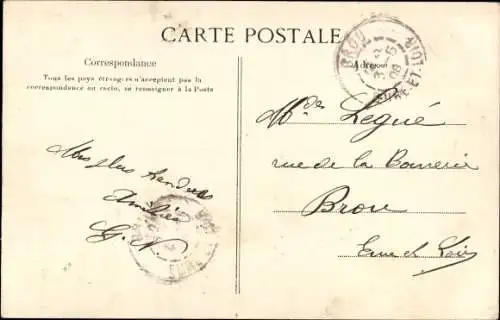 CARTE POSTALE
Correspondance
Tous les pays étrangers n'acceptent pas la
correspondance au recto, se renseigner à la Poste
Mes plus tendres
Amitiés
G. N.
BROU
EURE-ET-
Adresse
Mde Legué
rue de la Bonneterie
Brou
Eure et Loir